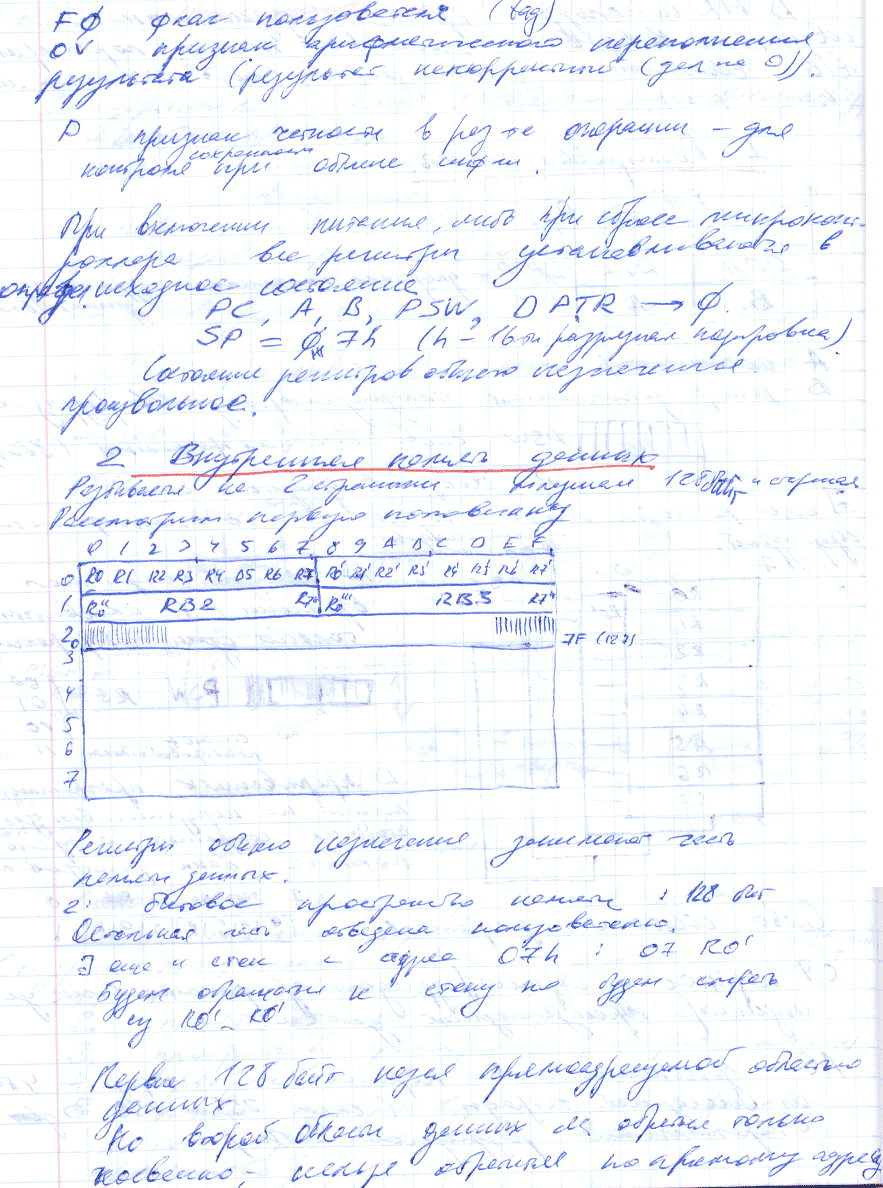 FØ флаг пользователя (tag)
OV признак арифметического переполнения
результата (результат некорректный (дел на 0)).
P признак четности в рез-те операции – для
контроля сохранности при обмене инфи.
При включении питания, либо при сбросе микрокон-
роллера все регистры устанавливаются в
определ исходное состояние
PC, A, B, PSW, DPTR → Ø.
SP = Ø7h (h – 16-ти разрядная кодировка)
Состояние регистров общего назначения
произвольное.
2 Внутренняя память данных
Разбивается на 2 страницы младшая 128 байт и старшая
Рассмотрим первую половинку
0 1 2 3 4 5 6 7 8 9 A B C D E F
0 R0 R1 R2 R3 R4 D5 R6 R7 R0' R1' R2' R3' R4' R5' R6' R7'
1 R0'' RB2 R7'' R0''' RB3 R7'''
2 0 7F (127)
3
4
5
6
7
Регистры общего назначения занимают часть
памяти данных.
2: битовое пространство памяти : 128 бит
Остальная часть отведена пользователю.
Э еще и стек с адреса 07h : 07 R0'
Будем обращаться к стеку но будем стирать
R0' – R0'
Первые 128 байт назыв прямоадресуемой областью
данных
Ко второй области данных м обратится только
косвенно, нельзя обратится по прямому адресу